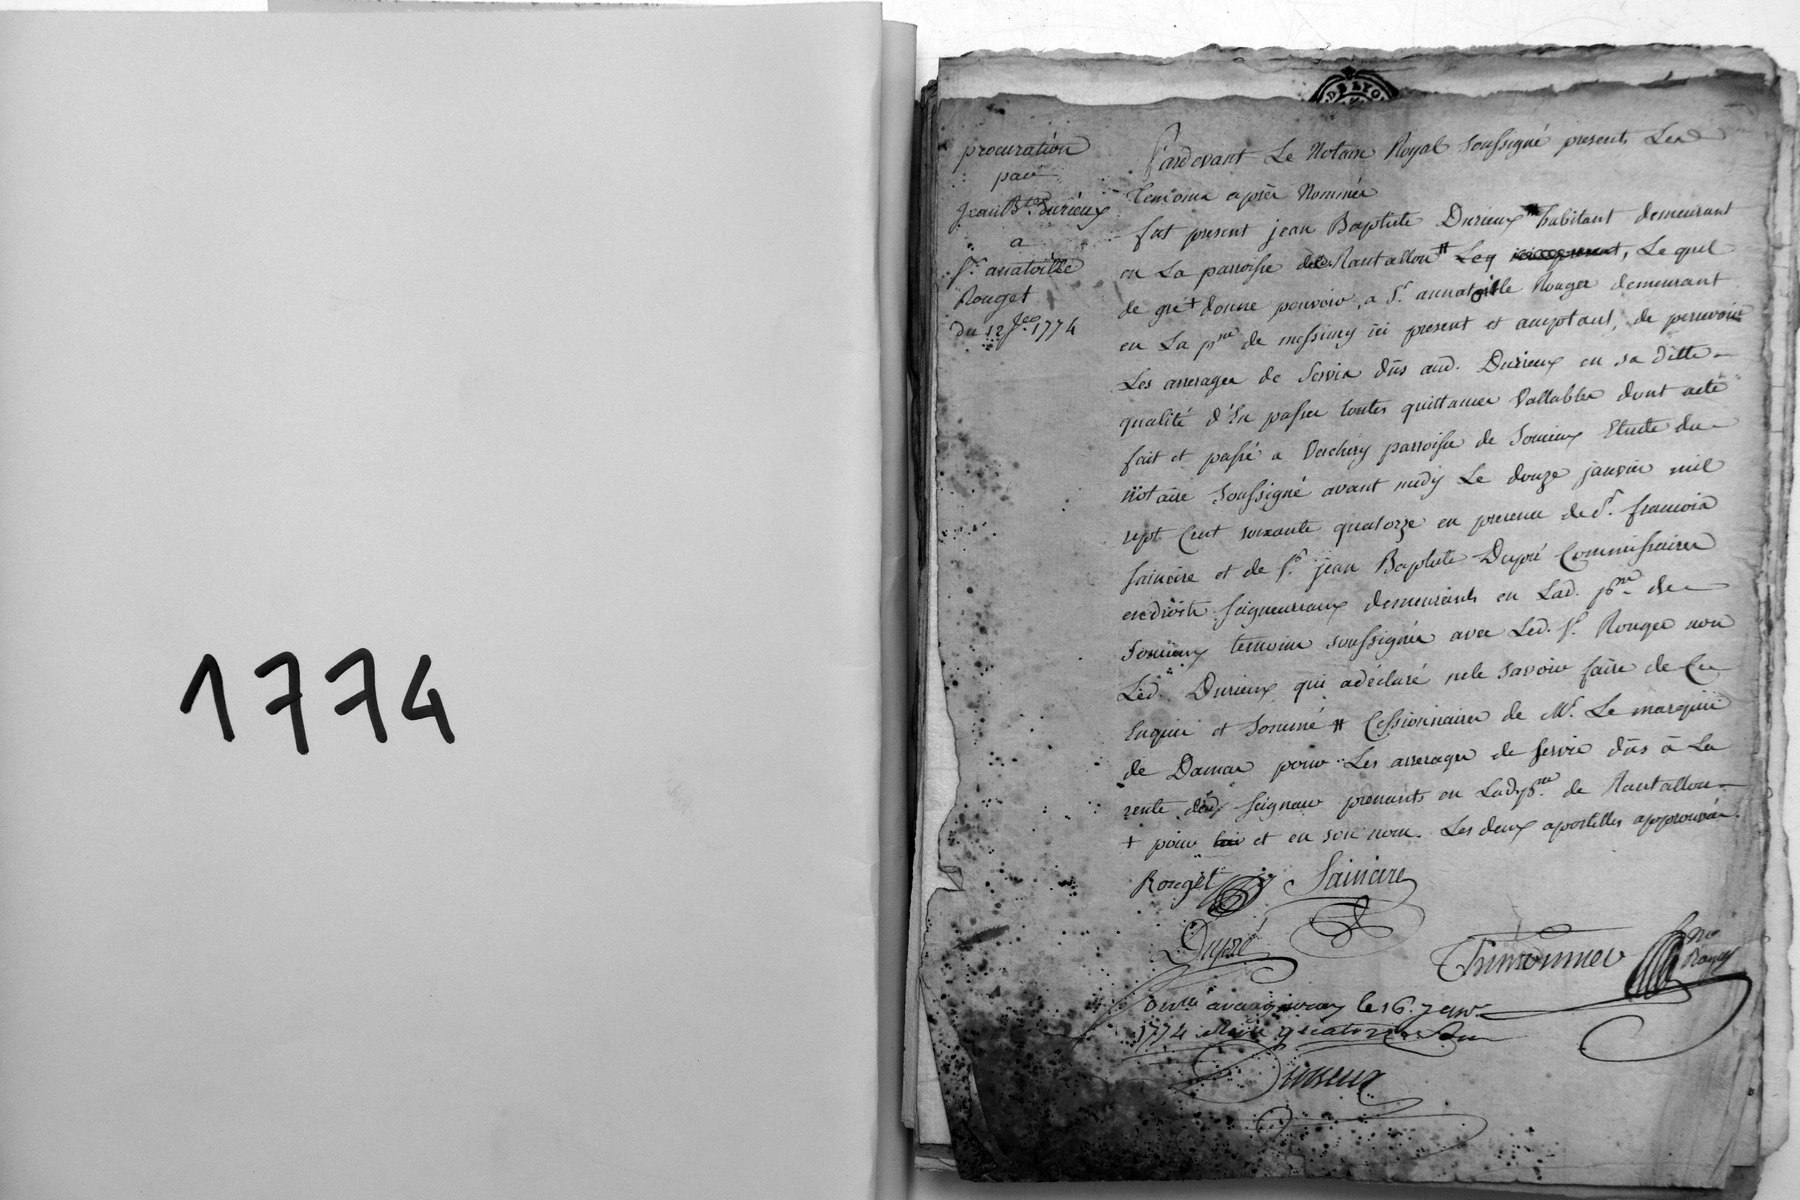 1774
DE LYO
procuration
par
Jean Bte Durieux
a
Sr. anatoille
Rouget
du 12 Jer 1774
Pardevant Le Notaire Royal soussigné presents Les
temoins après Nommés
fut present jean Baptiste Durieux habitant demeurant
en La parroisse de Rantallon # Leq, Lequel
de gré + donne pouvoir, a Sr. annatoille Rouget demeurant
en La psse de messimy ici present et acceptant, de percevoir
Les arrerages de servis dûs aud. Durieux en sa ditte
qualité d'En passer toutes quittances Vallables dont acte
fait et passé a Vachery parroisse de Soucieux Etude du
notaire soussigné avant midy Le douze janvier mil
sept Cent soixante quatorze en presence de Sr. francois
saincire et de Sr. jean Baptiste Dupré Commissaires
en droits seigneuriaux demeurants en Lad. psse de
Soucieux temoins soussignés avec Led. Sr. Rouget non
Led. Durieux qui a déclaré ne le savoir faire de Ce
Enquis et sommé # Cessionnaires de Mr. Le marquis
de Damas pour Les arrerages de servis dûs à La
rente dud. seigneur prenants en Lad. psse de Rantallon
+ pour lui et en son nom. Les deux apostilles approuvées.
Rouget Saincire
Dupré
Thimonnier no Royal
le 16. janv.
1774 quatorze